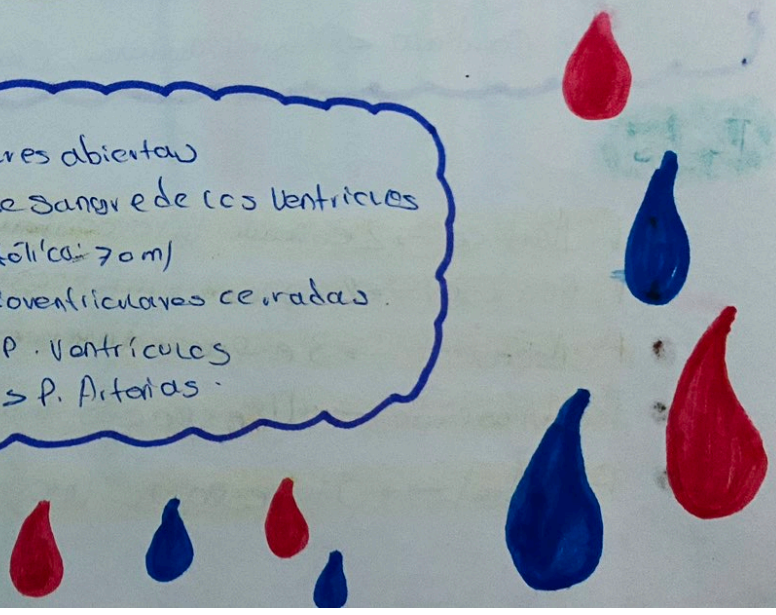 res abiertas
e sangre de los ventriculos
ólica: 70 ml
oventriculares cerradas.
P. Ventrículos
> P. Arterias.